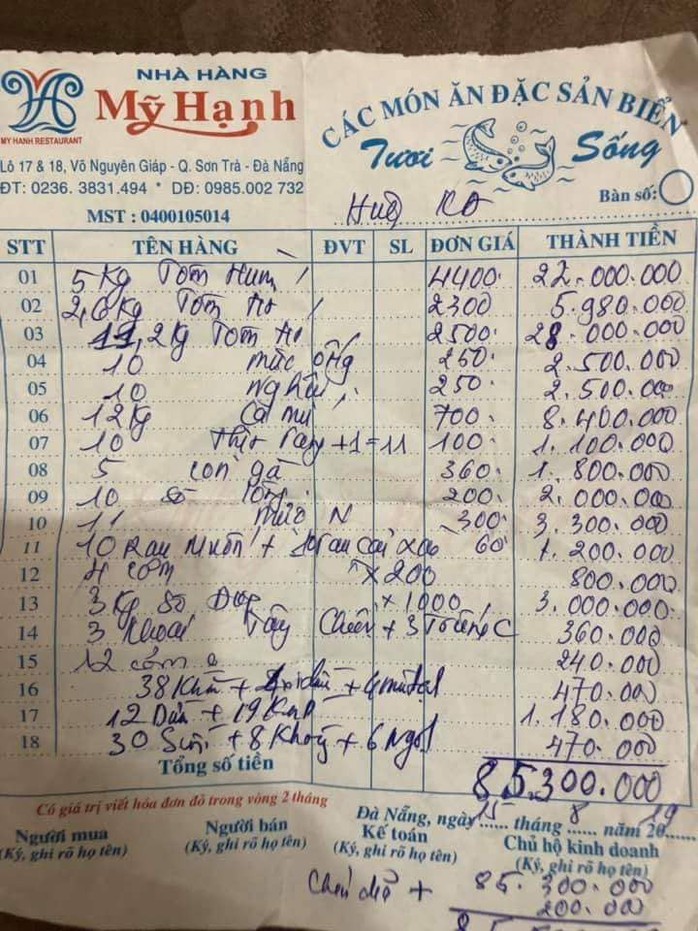 NHÀ HÀNG
Mỹ Hạnh
MY HANH RESTAURANT
CÁC MÓN ĂN ĐẶC SẢN BIỂN
Tươi Sống
Lô 17 & 18, Võ Nguyên Giáp - Q. Sơn Trà - Đà Nẵng
ĐT: 0236. 3831.494 * DĐ: 0985.002 732
MST : 0400105014
Bàn số:
STT TÊN HÀNG ĐVT SL ĐƠN GIÁ THÀNH TIỀN
01 5 Kg Tôm Hum 4400 22.000.000
02 2,6 Kg Tôm 2300 5.980.000
03 11,2 Kg Tôm 2500 28.000.000
04 10 mực 250 2.500.000
05 10 nghêu 250 2.500.000
06 12 Kg Cá mú 700 8.400.000
07 10 +1=11 100 1.100.000
08 5 con gà 360 1.800.000
09 10 sò lông 200 2.000.000
10 11 mực N 300 3.300.000
11 10 Rau Muốn + 10 rau cải xào 60 1.200.000
12 4 cơm x 200 800.000
13 3 Kg Sò x 1000 3.000.000
14 3 Khoai Tây Chiên + 3 Trứng C 360.000
15 12 cơm 240.000
16 38 Khăn + 4 470.000
17 12 Dừa + 19 Ken 1.180.000
18 30 Suối + 8 + 6 Ngọt 470.000
Tổng số tiền 85.300.000
Có giá trị viết hóa đơn đỏ trong vòng 2 tháng
Đà Nẵng, ngày 25 tháng 8 năm 2019
Người mua Người bán Kế toán Chủ hộ kinh doanh
(Ký, ghi rõ họ tên) (Ký, ghi rõ họ tên) (Ký, ghi rõ họ tên) (Ký, ghi rõ họ tên)
+ 85.300.000
200.000